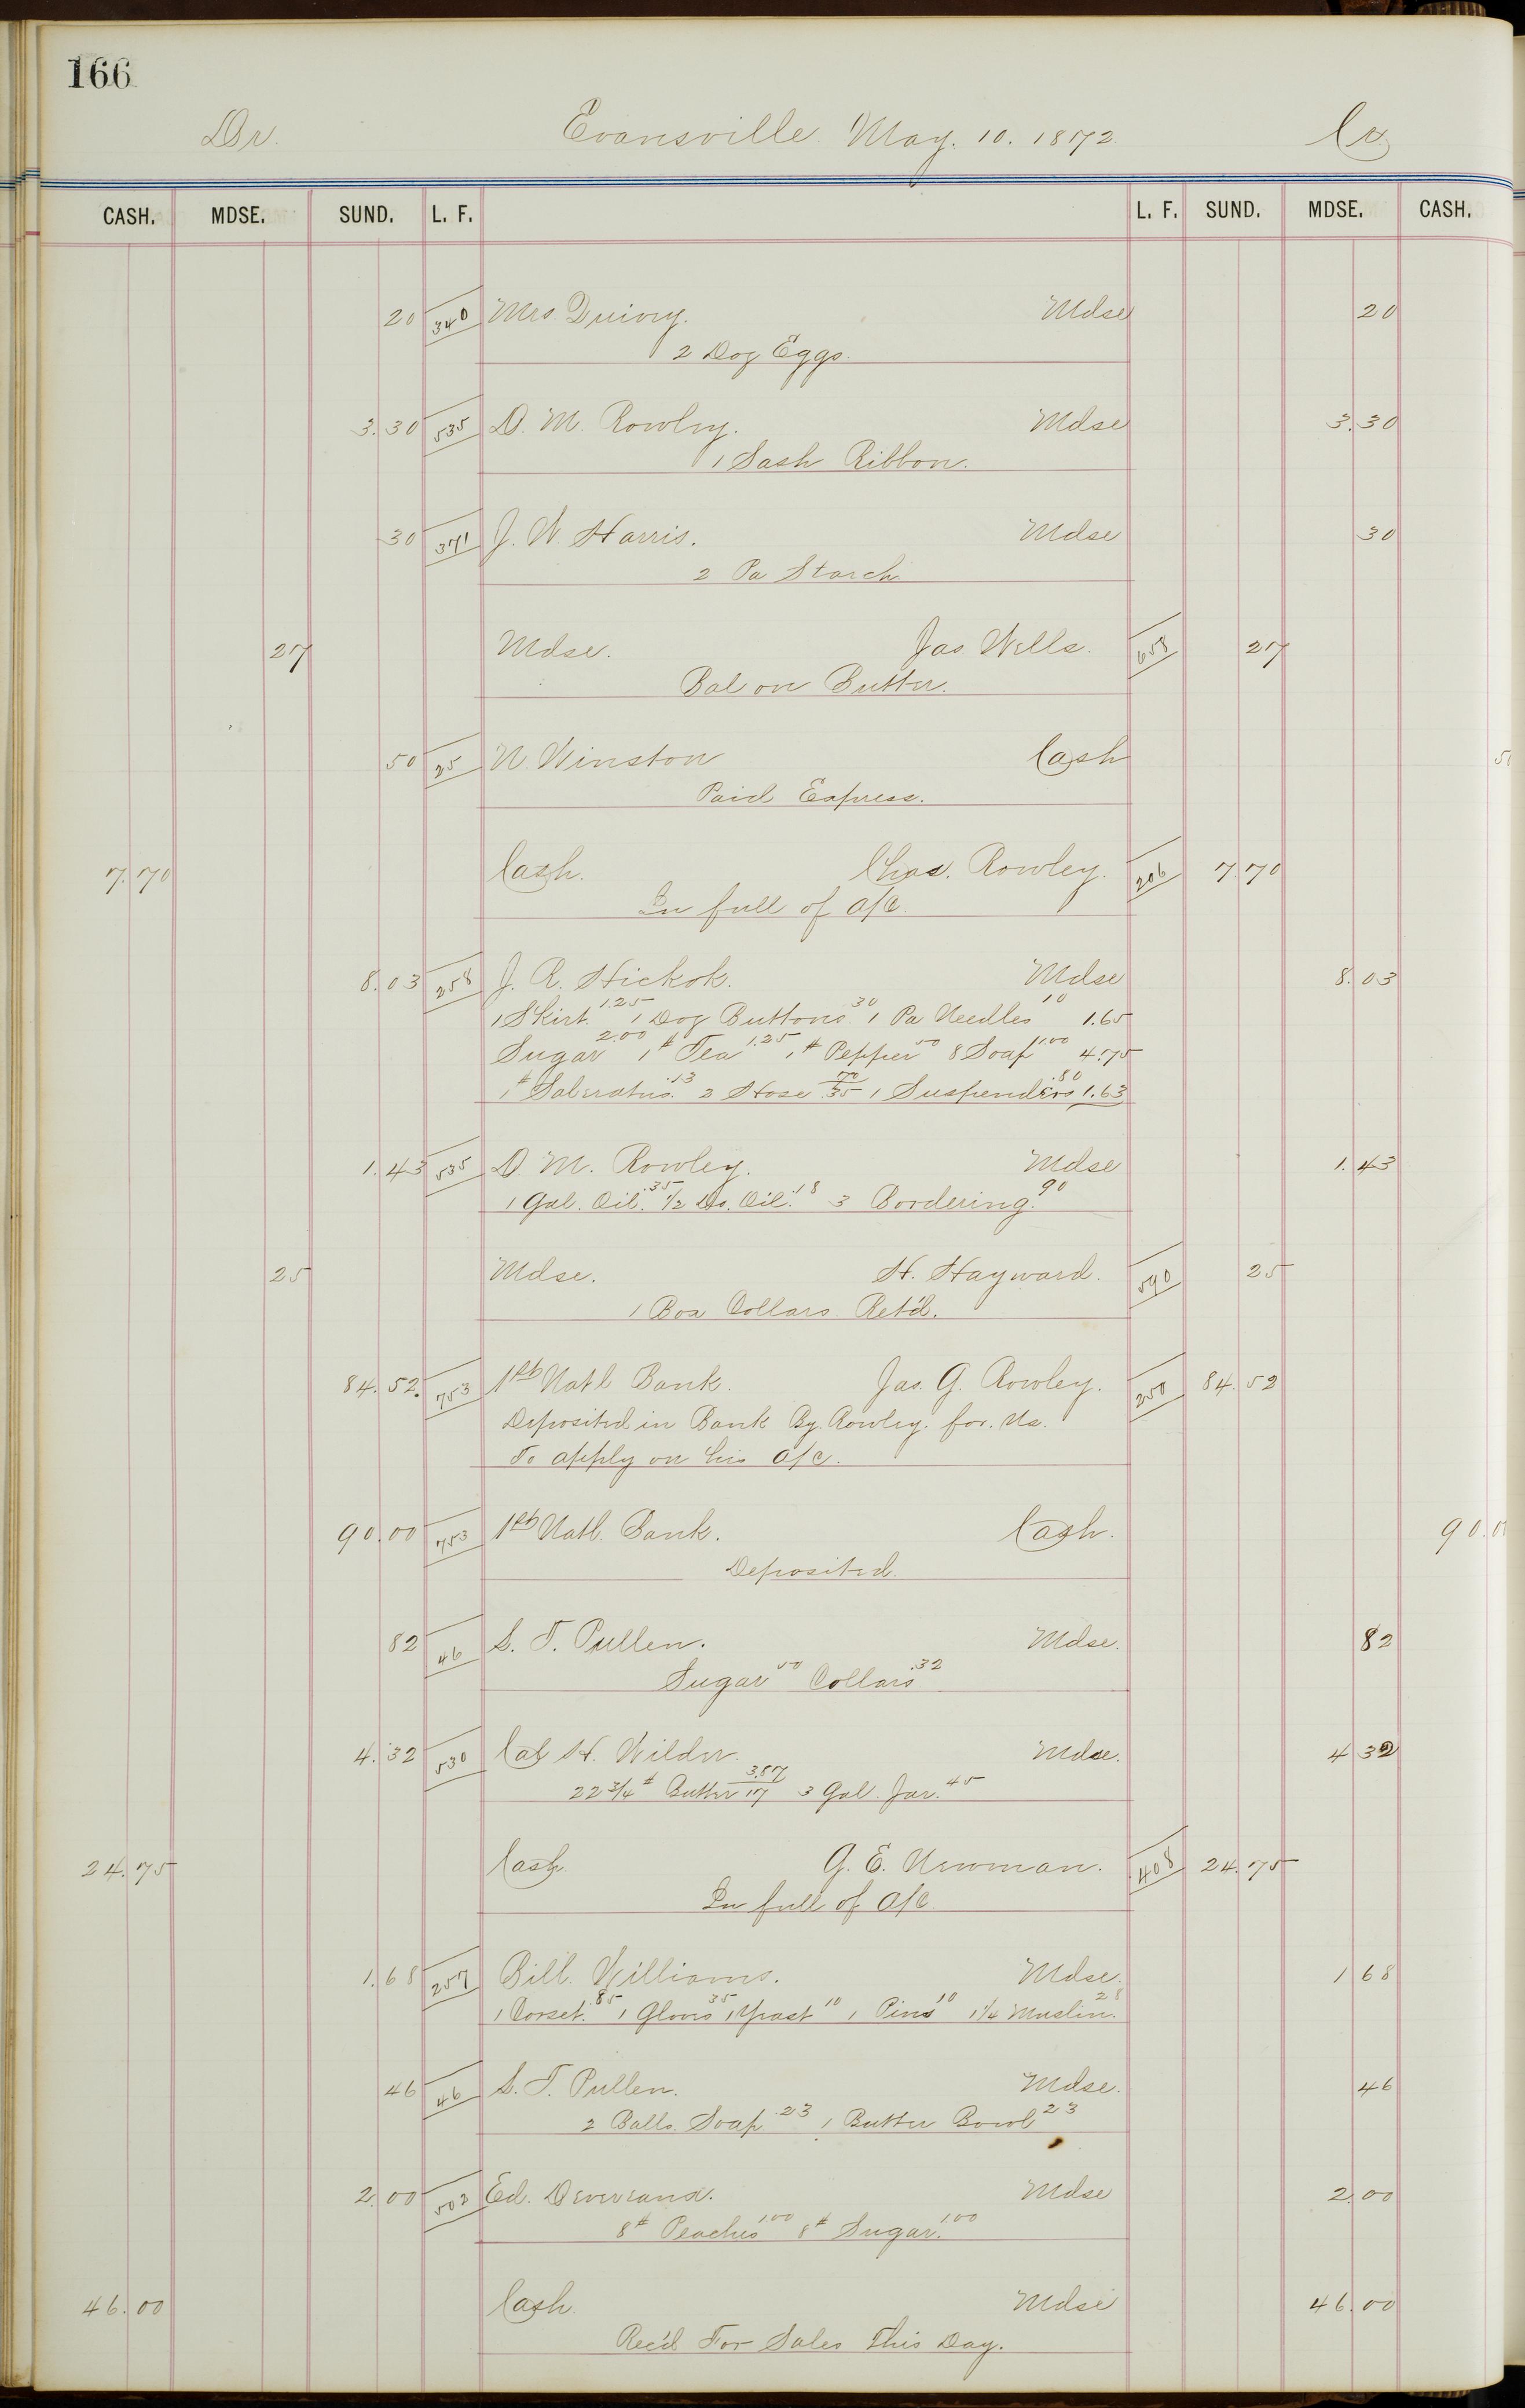 166
Dr. Evansville May. 10. 1872 Cr.
CASH. MDSE. SUND. L. F. L. F. SUND. MDSE. CASH.
20 340 Mrs Mdse 20
2 Doz Eggs.
3.30 535 D. M. Rowley. Mdse 3.30
1 Sash Ribbon.
30 371 J. W. Harris. Mdse 30
2 Pa Starch
27 Mdse. Jas Wells. 658 27
Bal on Butter.
50 25 N. Winston Cash 50
Paid Express.
7.70 Cash. Chas. Rowley. 206 7.70
In full of a/c.
8.03 258 J. R. Hickok. Mdse 8.03
1 Skirt. 1.25 1 Doz Buttons 30 1 Pa Needles 10 1.65
Sugar 2.00 1# Tea 1.25 1# Pepper 50 8 Soap 1.00 4.75
1# Saleratus. .13 2 Hose 70/35 1 Suspenders .80 1.63
1.43 535 D. M. Rowley. Mdse 1.43
1 Gal. Oil. .35 1/2 Do. Oil. .18 3 Bordering. 90
25 Mdse. H. Hayward. 590 25
1 Box Collars Ret'd.
84.52. 753 1st Natl Bank. Jas. G. Rowley. 250 84.52
Deposited in Bank By. Rowley. for. Us.
To apply on his a/c.
90.00 753 1st Natl. Bank. Cash. 90.0
Deposited
82 46 S. T. Pullen. Mdse. 82
Sugar 50 Collars .32
4.32 530 Cal H. Wilder. Mdse. 4 32
22 3/4# Butter 3.87/17 3 Gal. Jar. 45
24.75 Cash. G. E. Newman. 408 24.75
In full of a/c
1.68 257 Bill. Williams. Mdse. 1 68
1 Corset. .85 1 Gloves 35 1 Yeast 10 1 Pins 10 1 1/4 Muslin. 28
46 46 S. T. Pullen. Mdse. 46
2 Balls. Soap .23 1 Butter Bowl 23
2.00 502 Ed. Mdse 2.00
8# Peaches 1.00 8# Sugar. 1.00
46.00 Cash. Mdse 46.00
Rec'd For Sales This Day.